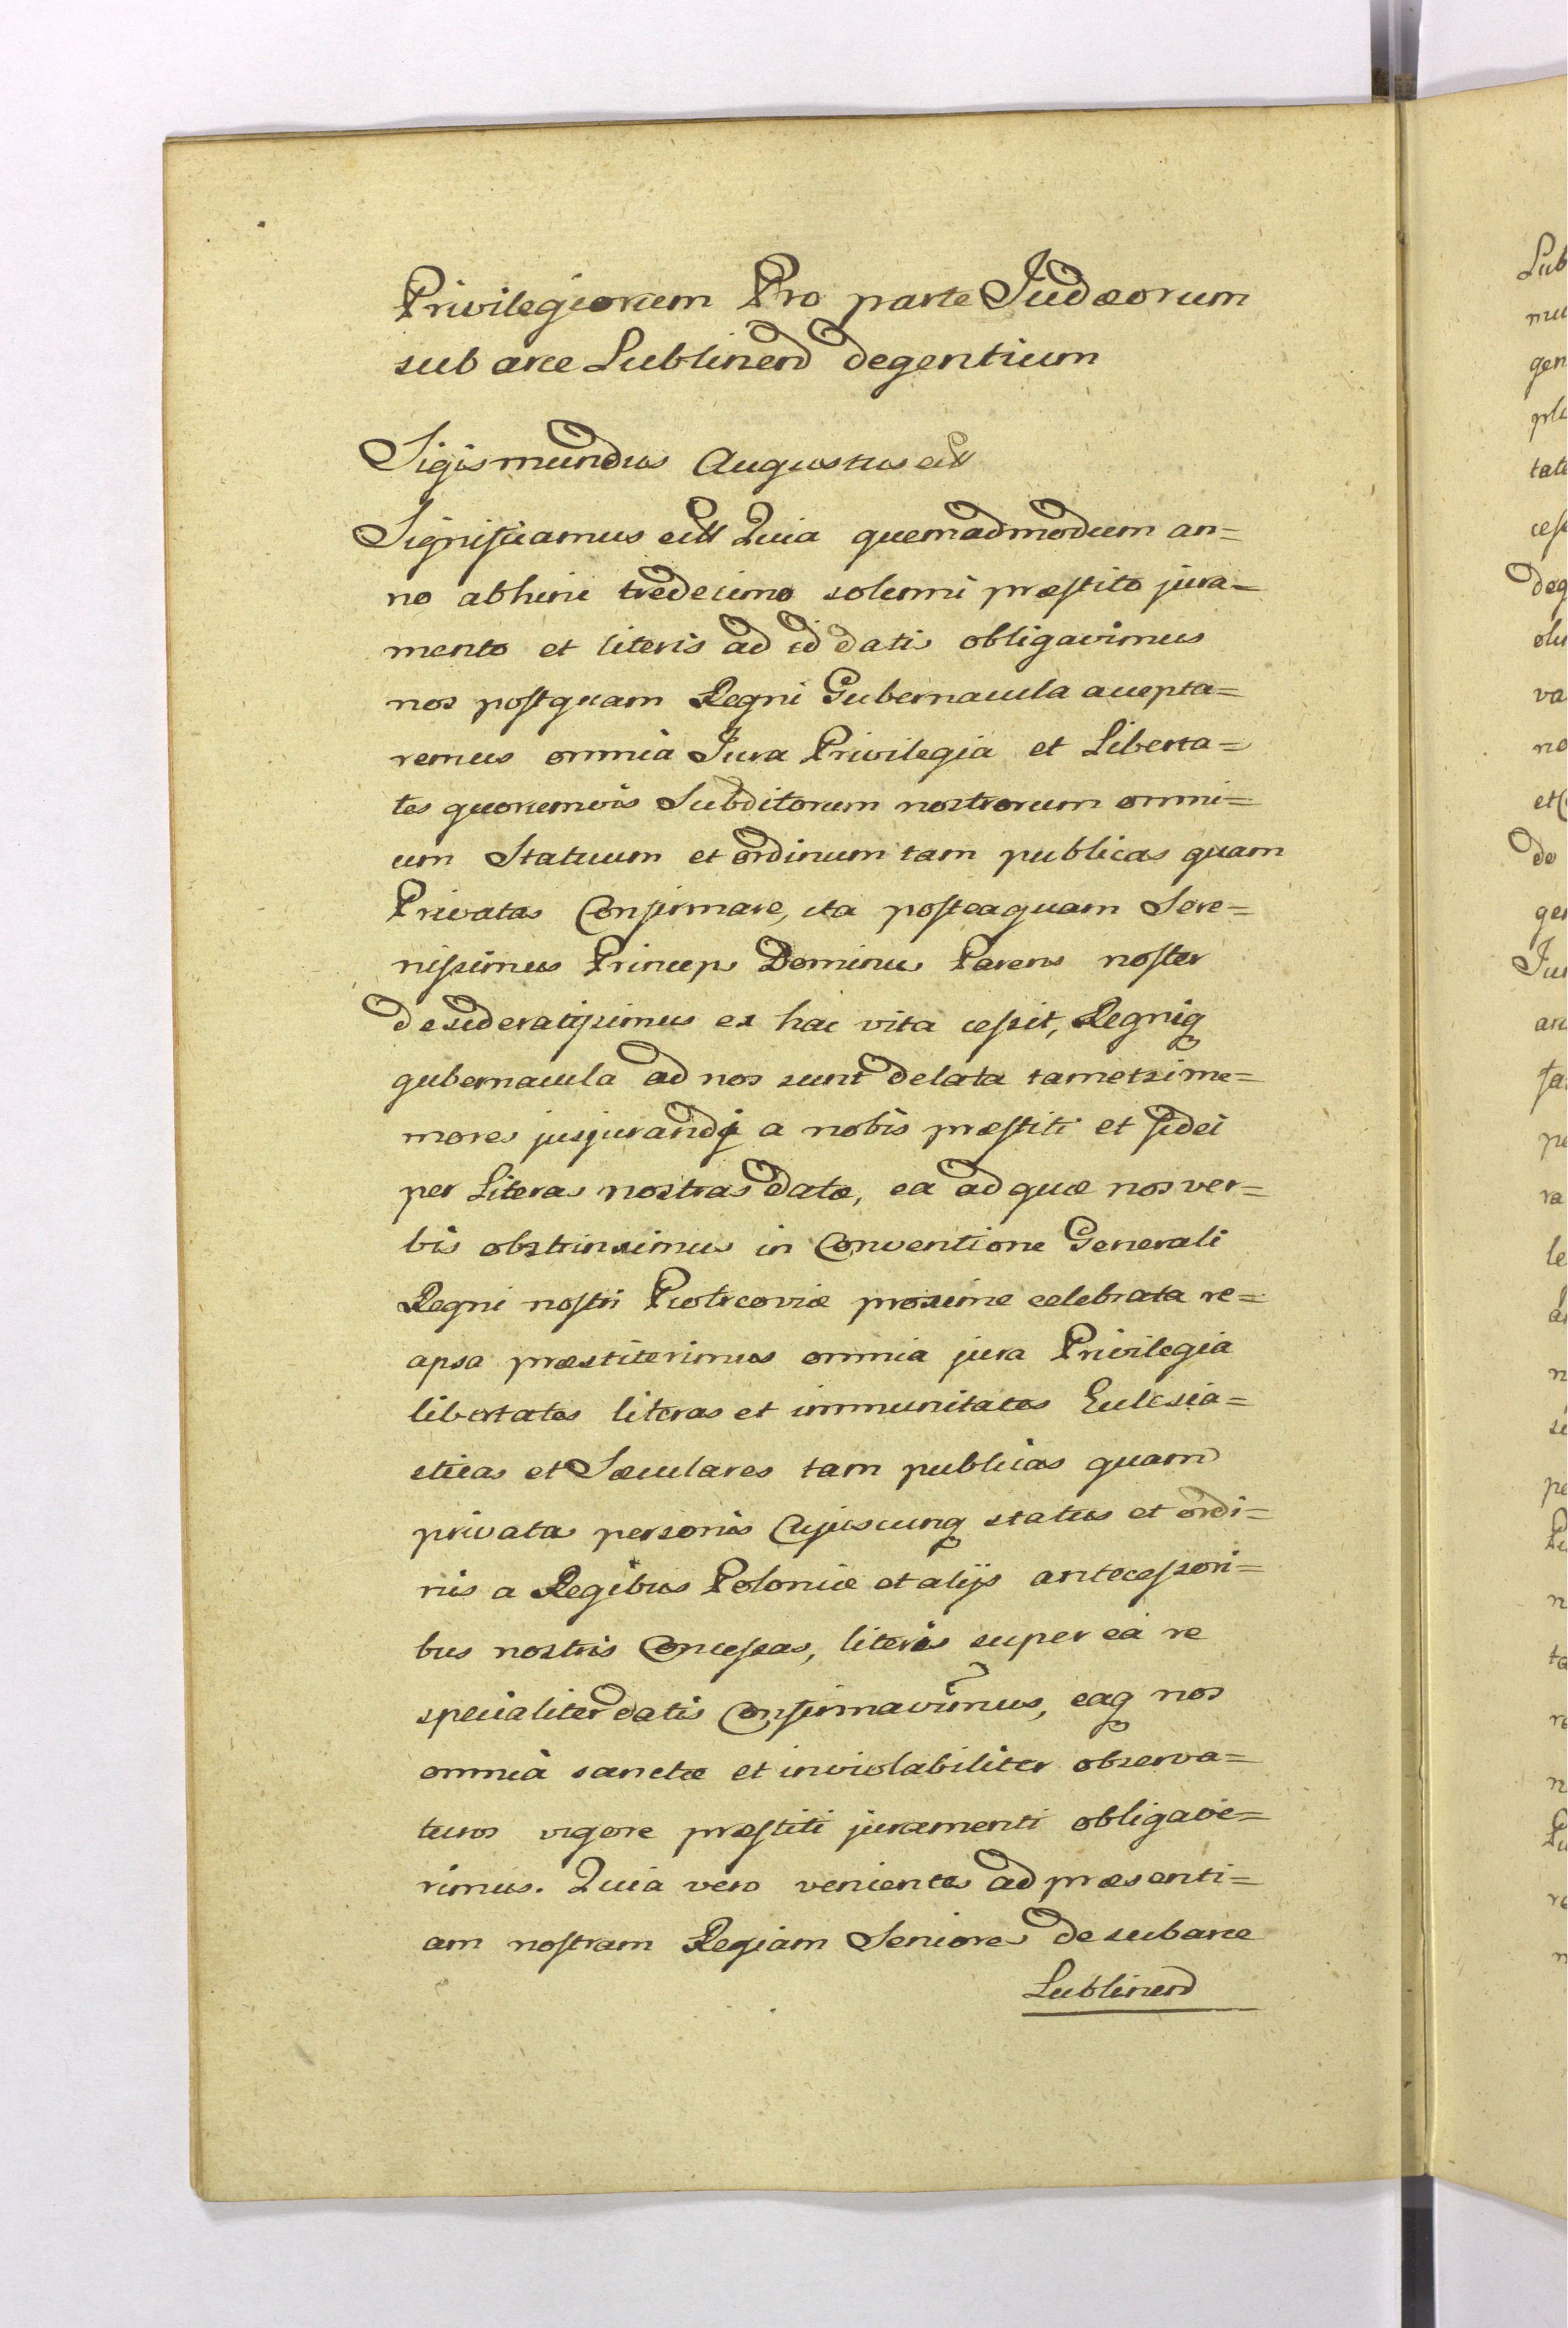 Privilegiorum Pro parte Judæorum
sub arce Lublinen degentium
Sigismundus Augustus etc
Significamus etc Quia quemadmodum an=
no abhinc tredecimo solenni præstito jura=
mento et literis ad id datis obligavimus
nos postquam Regni Gubernacula accepta=
remus omnia Jura Privilegia et Liberta=
tes quorumvis Subditorum nostrorum omni=
um Statuum et ordinum tam publicas quam
Privatas Confirmare, ita posteaquam Sere=
nissimus Princeps Dominus Parens noster
desideratissimus ex hac vita cessit, Regniq
gubernacula ad nos sunt delata tametsi me=
mores jusjurandi a nobis præstiti et fidei
per Literas nostras datæ, ea ad quæ nos ver=
bis obstrinximus in Conventione Generali
Regni nostri Piotrcoviæ proxime celebrata re=
apsa præstiterimus omnia jura Privilegia
libertates literas et immunitates Eclesia=
sticas et Sæculares tam publicas quam
privatas personis Cujuscunq status et ordi=
nis a Regibus Poloniæ et alijs antecessori=
bus nostris Concessas, literis super ea re
specialiter datis Confirmavimus, eaq nos
omnia sancte et inviolabiliter observa=
turos vigore præstiti juramenti obligave=
rimus. Quia vero venientes ad præsenti=
am nostram Regiam Seniores de sub arce
Lublinen